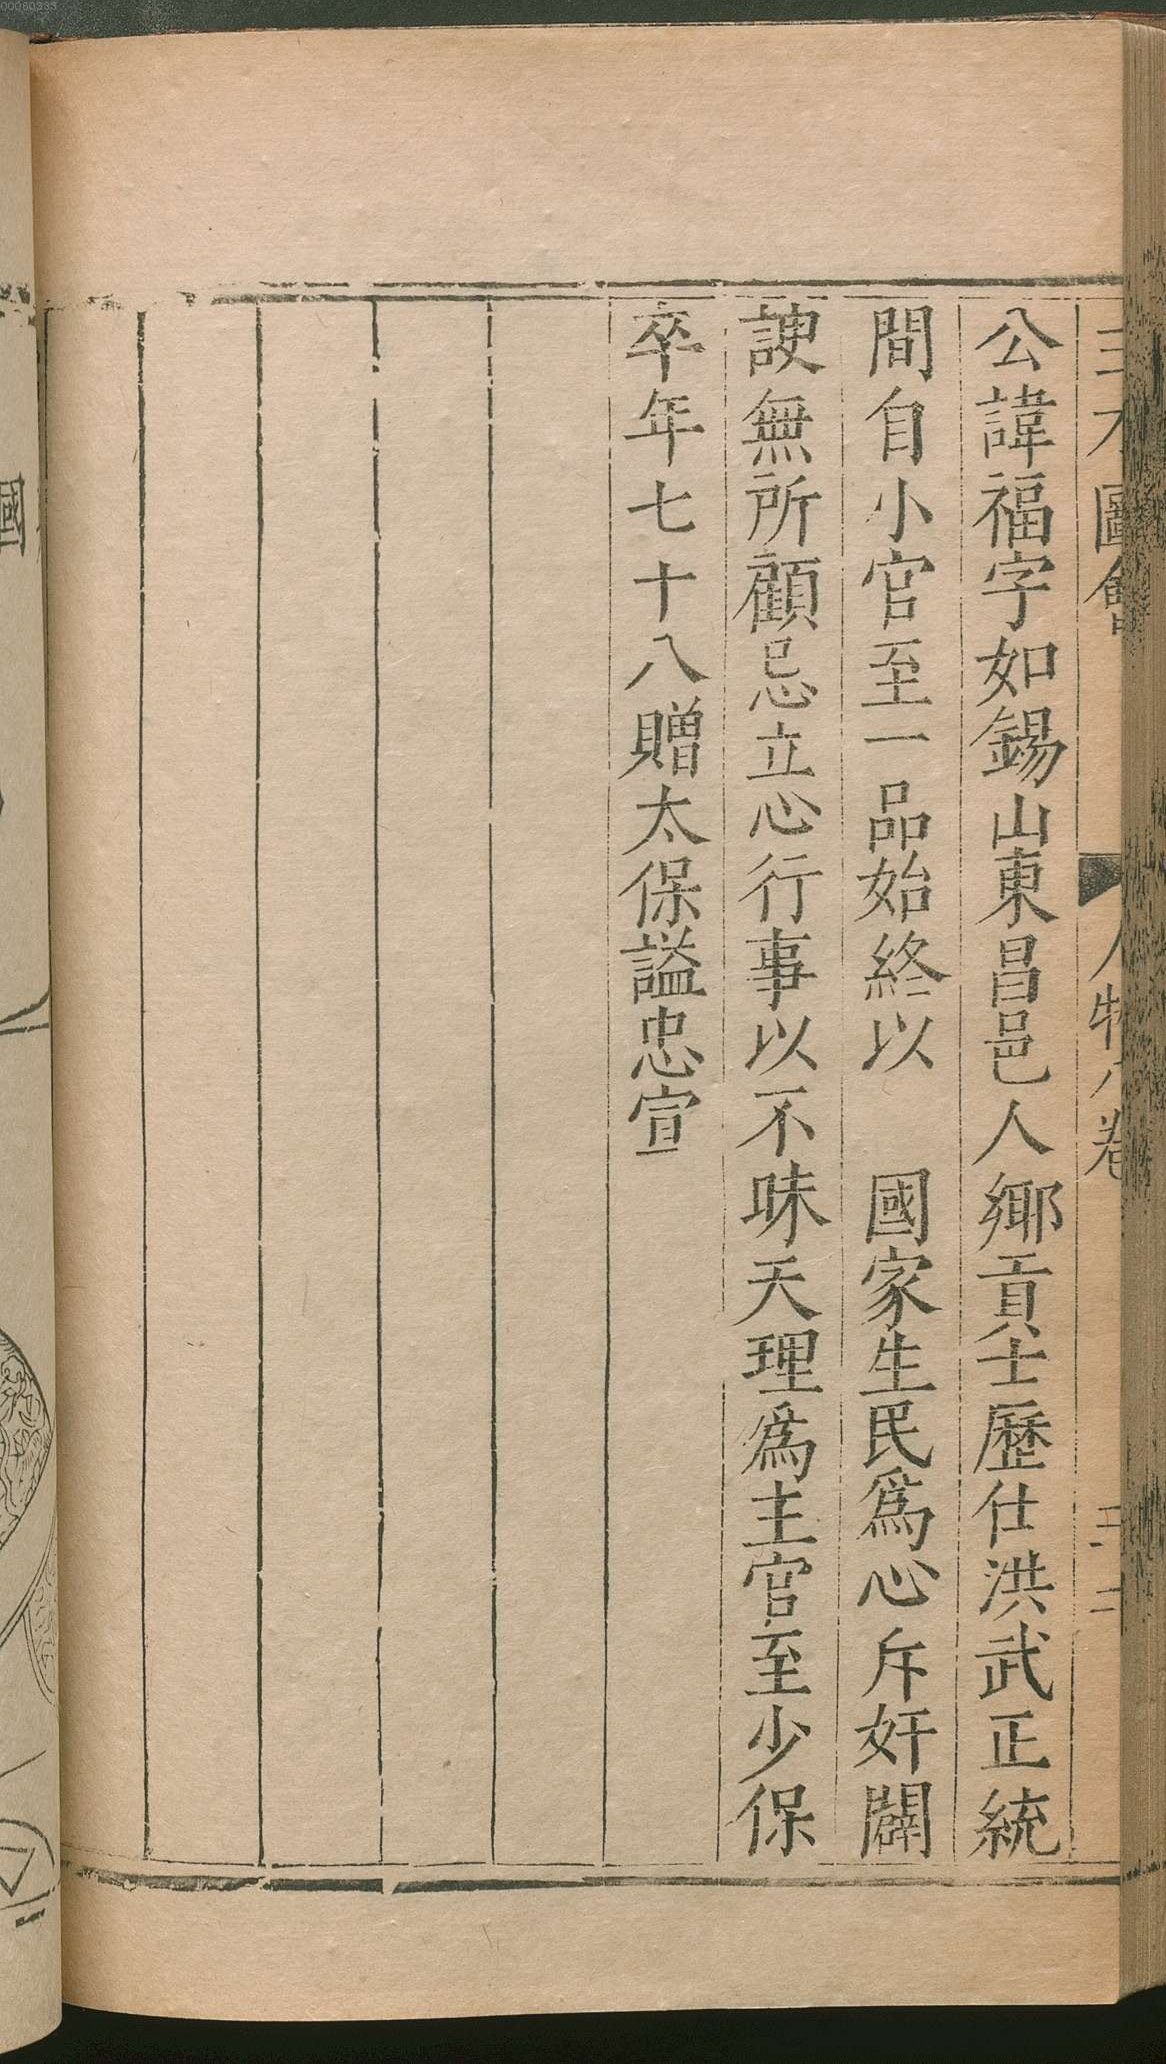 三才圖會 人物八卷 三十二
公諱福字如錫山東昌邑人鄉貢士歷仕洪武正統
間自小官至一品始終以 國家生民爲心斥奸闢
諛無所顧忌立心行事以不昧天理爲主官至少保
卒年七十八贈太保謚忠宣
國
00060333